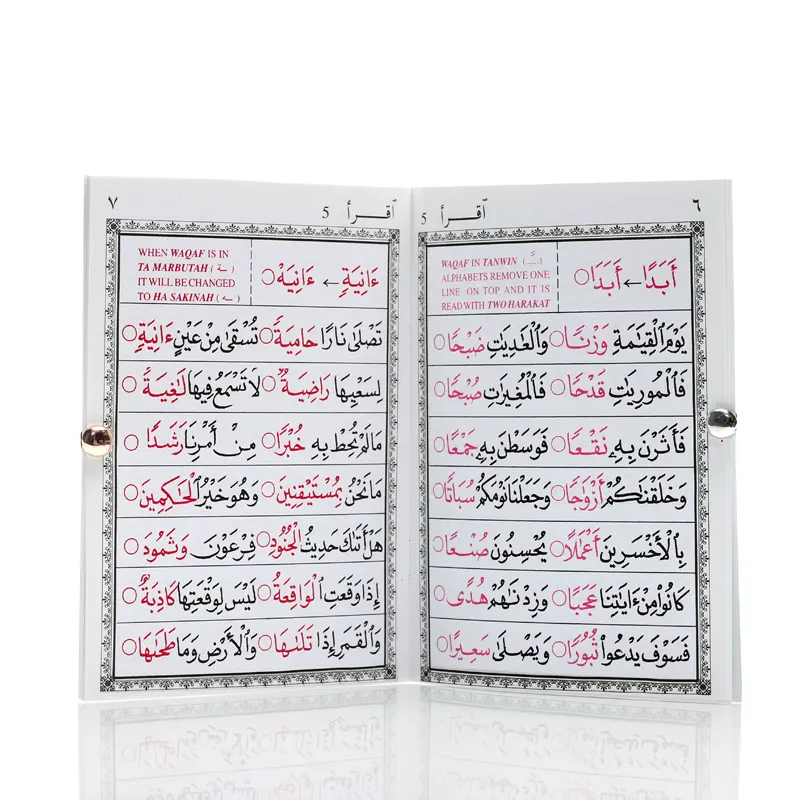 ٦
ٱقرأ 5
أَبَدًا ← أَبَدَا ○
WAQAF IN TANWIN (ـًـ)
ALPHABETS REMOVE ONE
LINE ON TOP AND IT IS
READ WITH TWO HARAKAT
يَوْمَ الْقِيَامَةِ وَزْنًا ○ وَالْعَٰدِيَٰتِ ضَبْحًا ○
فَالْمُورِيَٰتِ قَدْحًا ○ فَالْمُغِيرَٰتِ صُبْحًا ○
فَأَثَرْنَ بِهِۦ نَقْعًا ○ فَوَسَطْنَ بِهِۦ جَمْعًا ○
وَخَلَقْنَٰكُمْ أَزْوَٰجًا ○ وَجَعَلْنَا نَوْمَكُمْ سُبَاتًا ○
بِالْأَخْسَرِينَ أَعْمَٰلًا ○ يُحْسِنُونَ صُنْعًا ○
كَانُوا مِنْ ءَايَٰتِنَا عَجَبًا ○ وَزِدْنَٰهُمْ هُدًى ○
فَسَوْفَ يَدْعُوا ثُبُورًا ○ وَيَصْلَىٰ سَعِيرًا ○
٧
ٱقرأ 5
ءَانِيَةٍ ← ءَانِيَهْ ○
WHEN WAQAF IS IN
TA MARBUTAH (ـة)
IT WILL BE CHANGED
TO HA SAKINAH (ـه)
تَصْلَىٰ نَارًا حَامِيَةً ○ تُسْقَىٰ مِنْ عَيْنٍ ءَانِيَةٍ ○
لِسَعْيِهَا رَاضِيَةٌ ○ لَا تَسْمَعُ فِيهَا لَٰغِيَةً ○
مَا لَمْ تُحِطْ بِهِ خُبْرًا ○ مِنْ أَمْرِنَا رَشَدًا ○
مَا نَحْنُ بِمُسْتَيْقِنِينَ ○ وَهُوَ خَيْرُ الْحَاكِمِينَ ○
هَلْ أَتَىٰكَ حَدِيثُ الْجُنُودِ ○ فِرْعَوْنَ وَثَمُودَ ○
إِذَا وَقَعَتِ الْوَاقِعَةُ ○ لَيْسَ لِوَقْعَتِهَا كَاذِبَةٌ ○
وَالْقَمَرِ إِذَا تَلَىٰهَا ○ وَالْأَرْضِ وَمَا طَحَىٰهَا ○